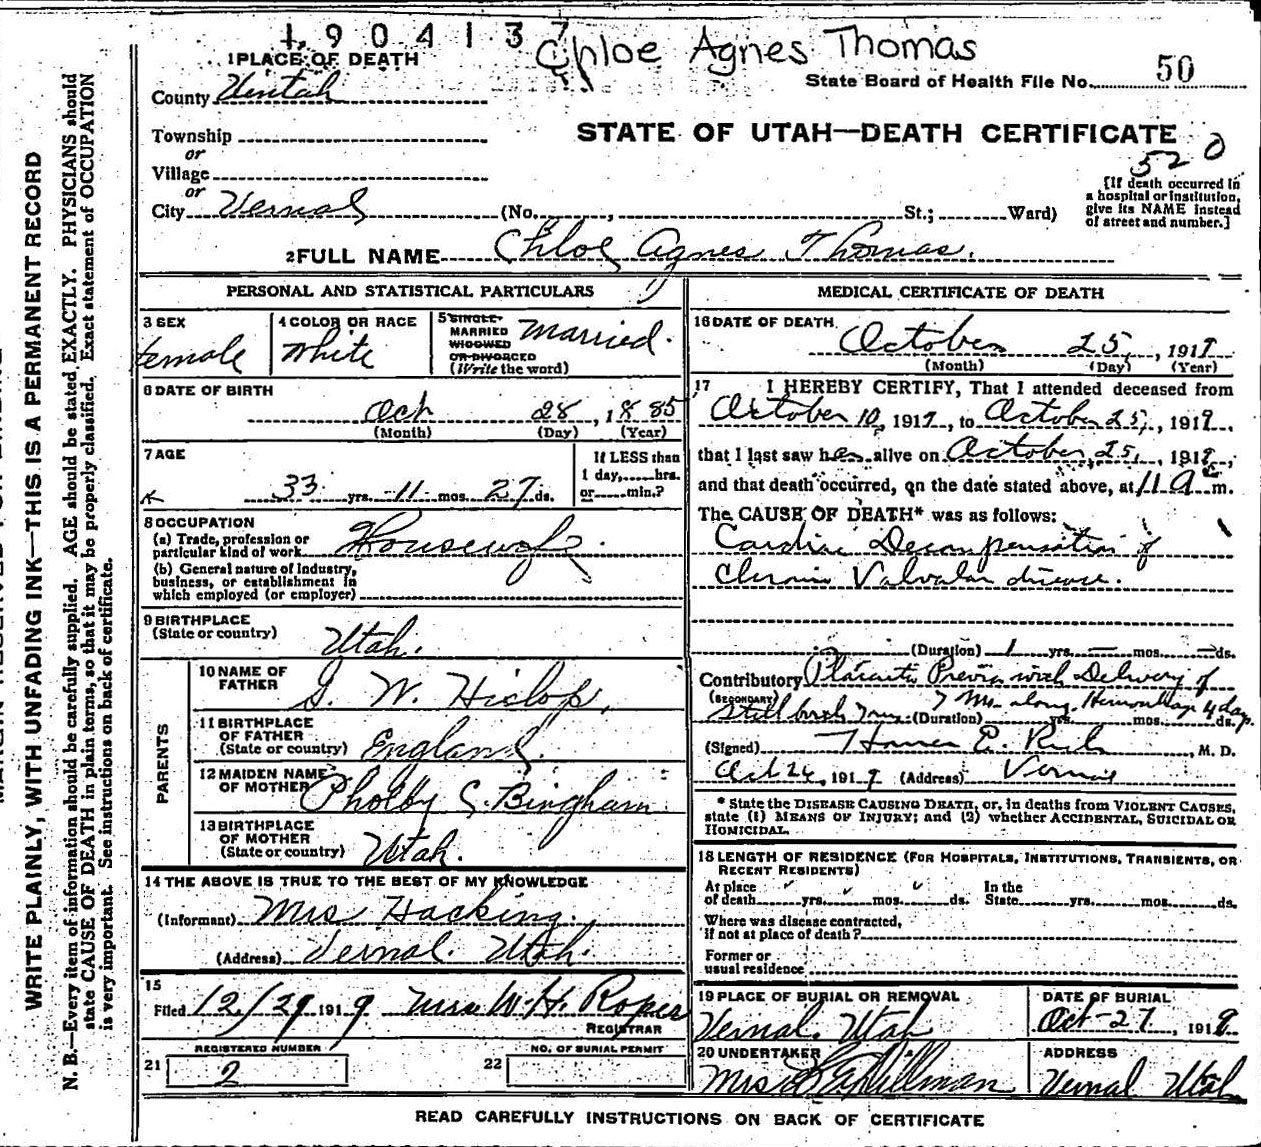 1904137
Chloe Agnes Thomas
1 PLACE OF DEATH
State Board of Health File No. 50
County Uintah
STATE OF UTAH—DEATH CERTIFICATE
Township
or
520
Village
or
[If death occurred in a hospital or institution, give its NAME instead of street and number.]
City Vernal (No. , St.; Ward)
2 FULL NAME Chloe Agnes Thomas.
PERSONAL AND STATISTICAL PARTICULARS
3 SEX
Female
4 COLOR OR RACE
White
5 SINGLE
MARRIED
WIDOWED
OR DIVORCED
(Write the word)
Married.
6 DATE OF BIRTH
Oct 28, 1885
(Month) (Day) (Year)
7 AGE
33 yrs. 11 mos. 27 ds.
If LESS than
1 day, hrs.
or min.?
8 OCCUPATION
(a) Trade, profession or
particular kind of work Housewife.
(b) General nature of Industry,
business, or establishment in
which employed (or employer)
9 BIRTHPLACE
(State or country)
Utah.
PARENTS
10 NAME OF
FATHER
G. W. Hislop,
11 BIRTHPLACE
OF FATHER
(State or country) England.
12 MAIDEN NAME
OF MOTHER Pholby S. Bingham
13 BIRTHPLACE
OF MOTHER
(State or country) Utah.
14 THE ABOVE IS TRUE TO THE BEST OF MY KNOWLEDGE
(Informant) Mrs Hacking.
(Address) Vernal. Utah.
15
Filed 12/29 1919 Mrs W. H. Roper
REGISTRAR
REGISTERED NUMBER
21 2
NO. OF BURIAL PERMIT
22
MEDICAL CERTIFICATE OF DEATH
16 DATE OF DEATH
October 25, 1919
(Month) (Day) (Year)
17 I HEREBY CERTIFY, That I attended deceased from
October 10, 1919, to October 25, 1919,
that I last saw her alive on October 25, 1919,
and that death occurred, on the date stated above, at 11 a m.
The CAUSE OF DEATH* was as follows:
Cardiac Decompensation of
Chronic Valvular disease.
(Duration) 1 yrs. — mos. — ds.
Contributory Placenta Previa with Delivery of
(SECONDARY) 7 Mo. along, Hemorrhage 4 days
Still birth (Duration) yrs. mos. ds.
(Signed) Homer E. Rich, M. D.
Oct 26, 1919 (Address) Vernal
* State the DISEASE CAUSING DEATH, or, in deaths from VIOLENT CAUSES,
state (1) MEANS OF INJURY; and (2) whether ACCIDENTAL, SUICIDAL OR
HOMICIDAL.
18 LENGTH OF RESIDENCE (FOR HOSPITALS, INSTITUTIONS, TRANSIENTS, OR
RECENT RESIDENTS)
At place In the
of death yrs. mos. ds. State yrs. mos. ds.
Where was disease contracted,
if not at place of death?
Former or
usual residence
19 PLACE OF BURIAL OR REMOVAL
Vernal, Utah
DATE OF BURIAL
Oct-27, 1919.
20 UNDERTAKER
Mrs Dillman
ADDRESS
Vernal Utah
READ CAREFULLY INSTRUCTIONS ON BACK OF CERTIFICATE
WRITE PLAINLY, WITH UNFADING INK—THIS IS A PERMANENT RECORD
N. B.—Every item of information should be carefully supplied. AGE should be stated EXACTLY. PHYSICIANS should
state CAUSE OF DEATH in plain terms, so that it may be properly classified. Exact statement of OCCUPATION
is very important. See instructions on back of certificate.